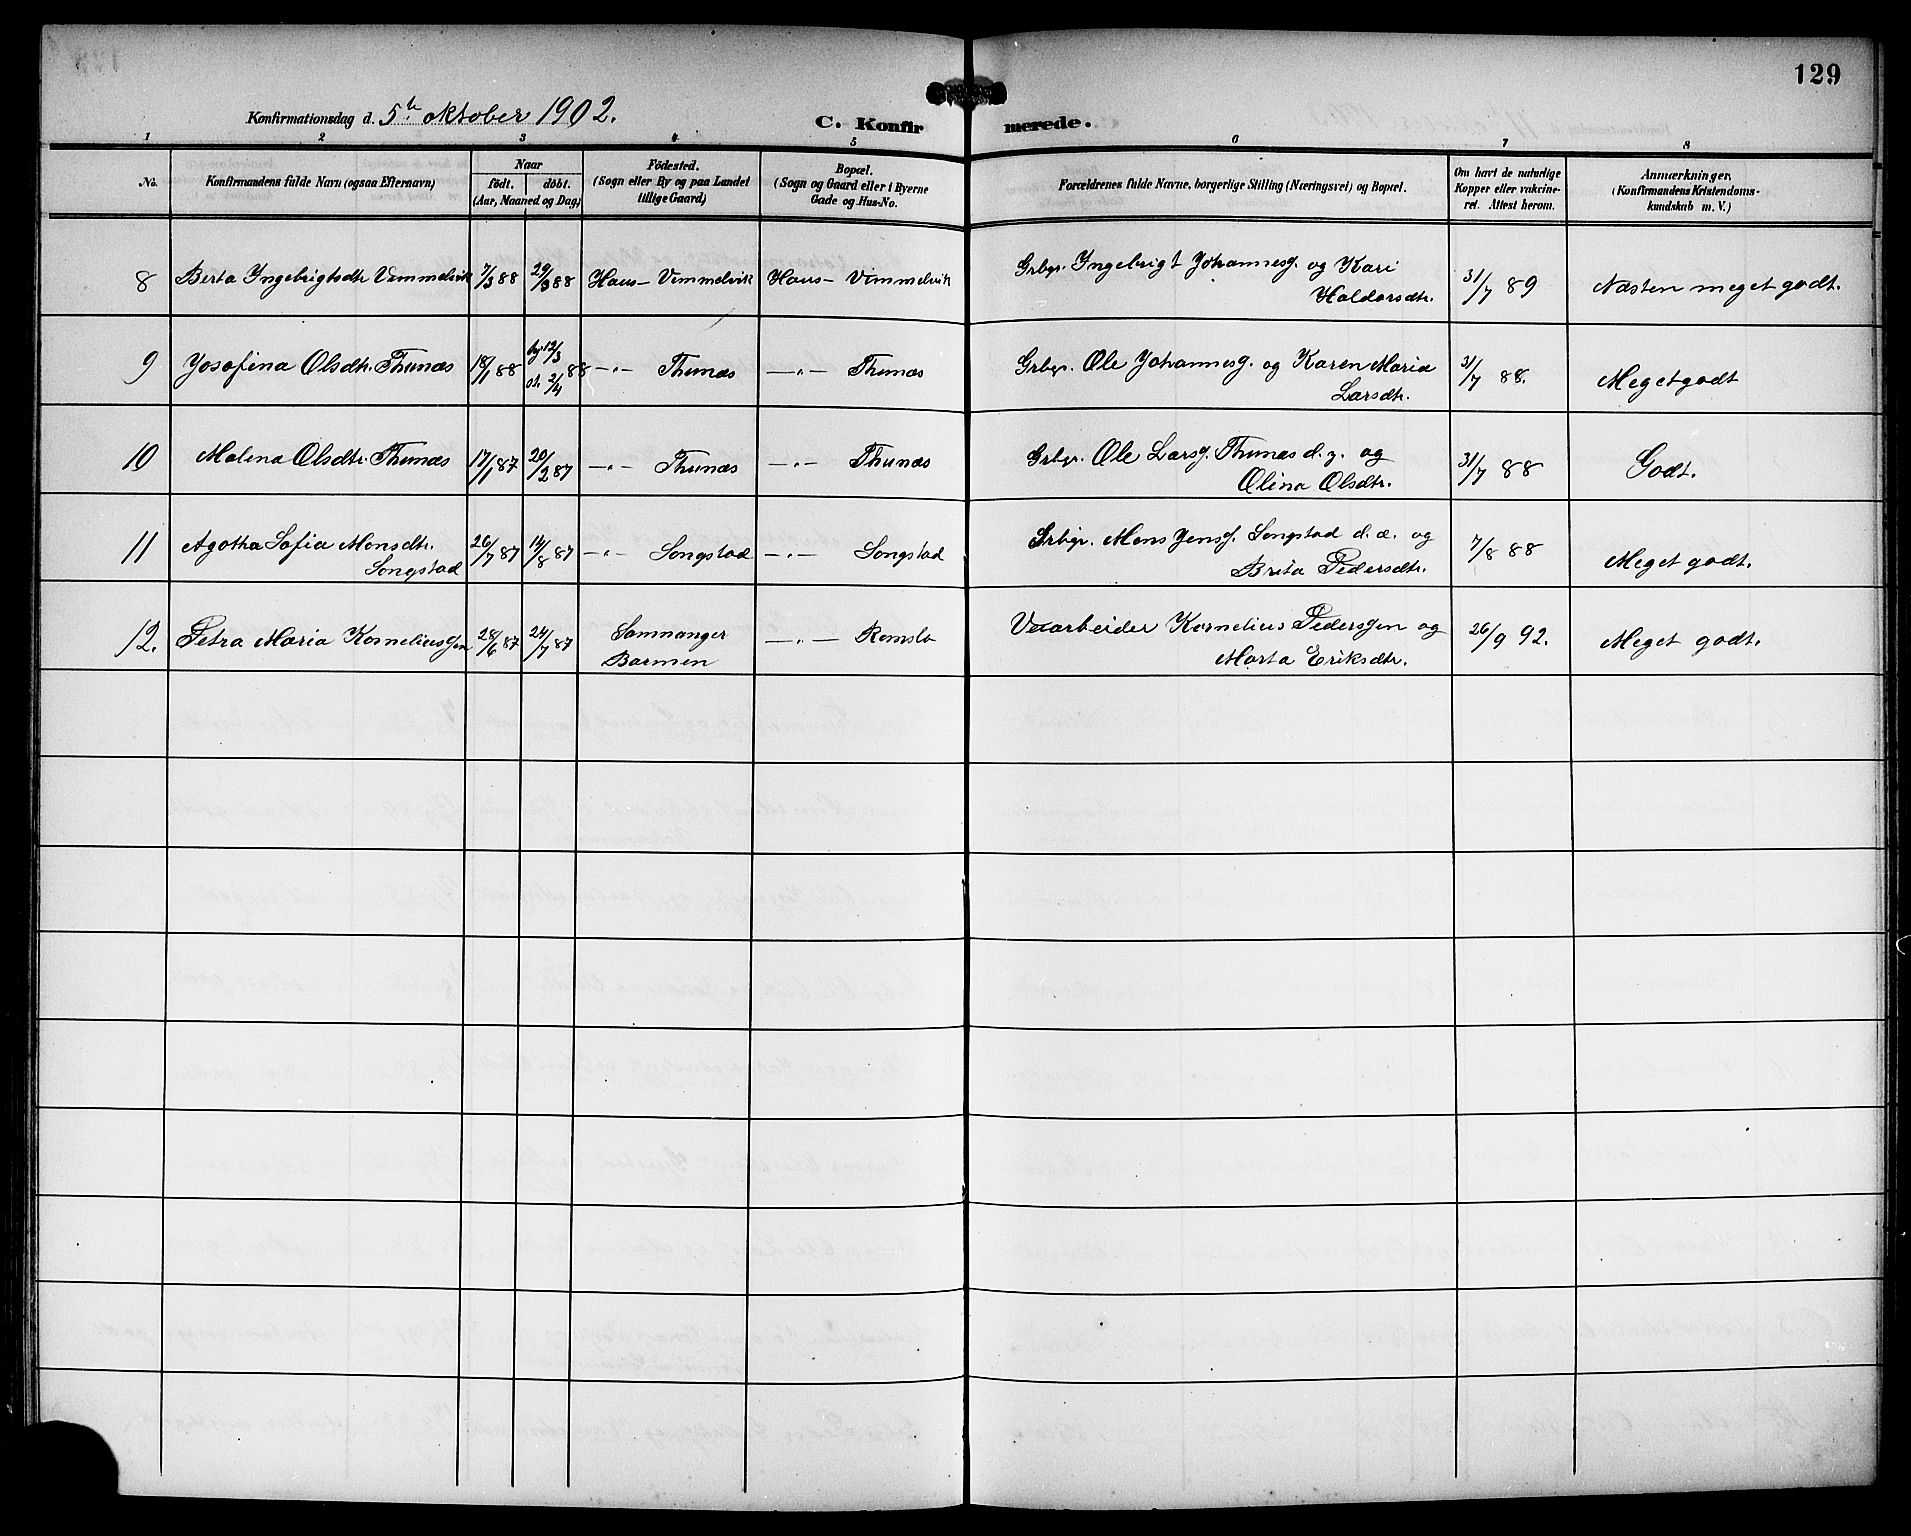 129
Konfirmationsdag d. 5te oktober 1902.
C. Konfirmerede.
1 2 3 4 5 6 7 8
No.
Konfirmandens fulde Navn (ogsaa Efternavn)
Naar
födt. döbt.
(Aar, Maaned og Dag)
Födested.
(Sogn eller By og paa Landet
tillige Gaard)
Bopæl.
(Sogn og Gaard eller i Byerne
Gade og Hus-No.
Forældrenes fulde Navne, borgerlige Stilling (Næringsvei) og Bopæl.
Om havt de naturlige
Kopper eller vakcine-
ret. Attest herom.
Anmærkninger,
(Konfirmandens Kristendoms-
kundskab m. V.)
8 Berta Ingebrigtsdtr Vimmelvik 7/3 88 29/3 88 Haus – Vimmelvik Haus – Vimmelvik Grbgr. Ingebrigt Johannesʃ. og Kari
Haldorsdtr. 31/7 89 Næsten meget godt.
9 Josefina Olsdtr. Thunæs 18/1 88 hj 12/3
ok. 2/4 88 –"– Thunæs –"– Thunæs Grbgr. Ole Johannesʃ. og Karen Maria
Larsdtr. 31/7 88. Meget godt
10 Malena Olsdtr. Thunæs 17/1 87 20/2 87 –"– Thunæs –"– Thunæs Grbgr. Ole Larsʃ. Thunæs d. y. og
Olina Olsdtr. 31/7 88 Godt.
11 Agotha Sofia Monsdtr.
Songstad 26/7 87 14/8 87 –"– Songstad –"– Songstad Grbgr. Mons Jensʃ. Songstad d. æ. og
Brita Pedersdtr. 7/8 88 Meget godt.
12. Petra Maria Kornelius ʃen 28/6 87 24/7 87 Samnanger
Barmen –"– Romslo Veiarbeider Kornelius Pedersʃen og
Marta Eriksdtr. 26/9 92. Meget godt.